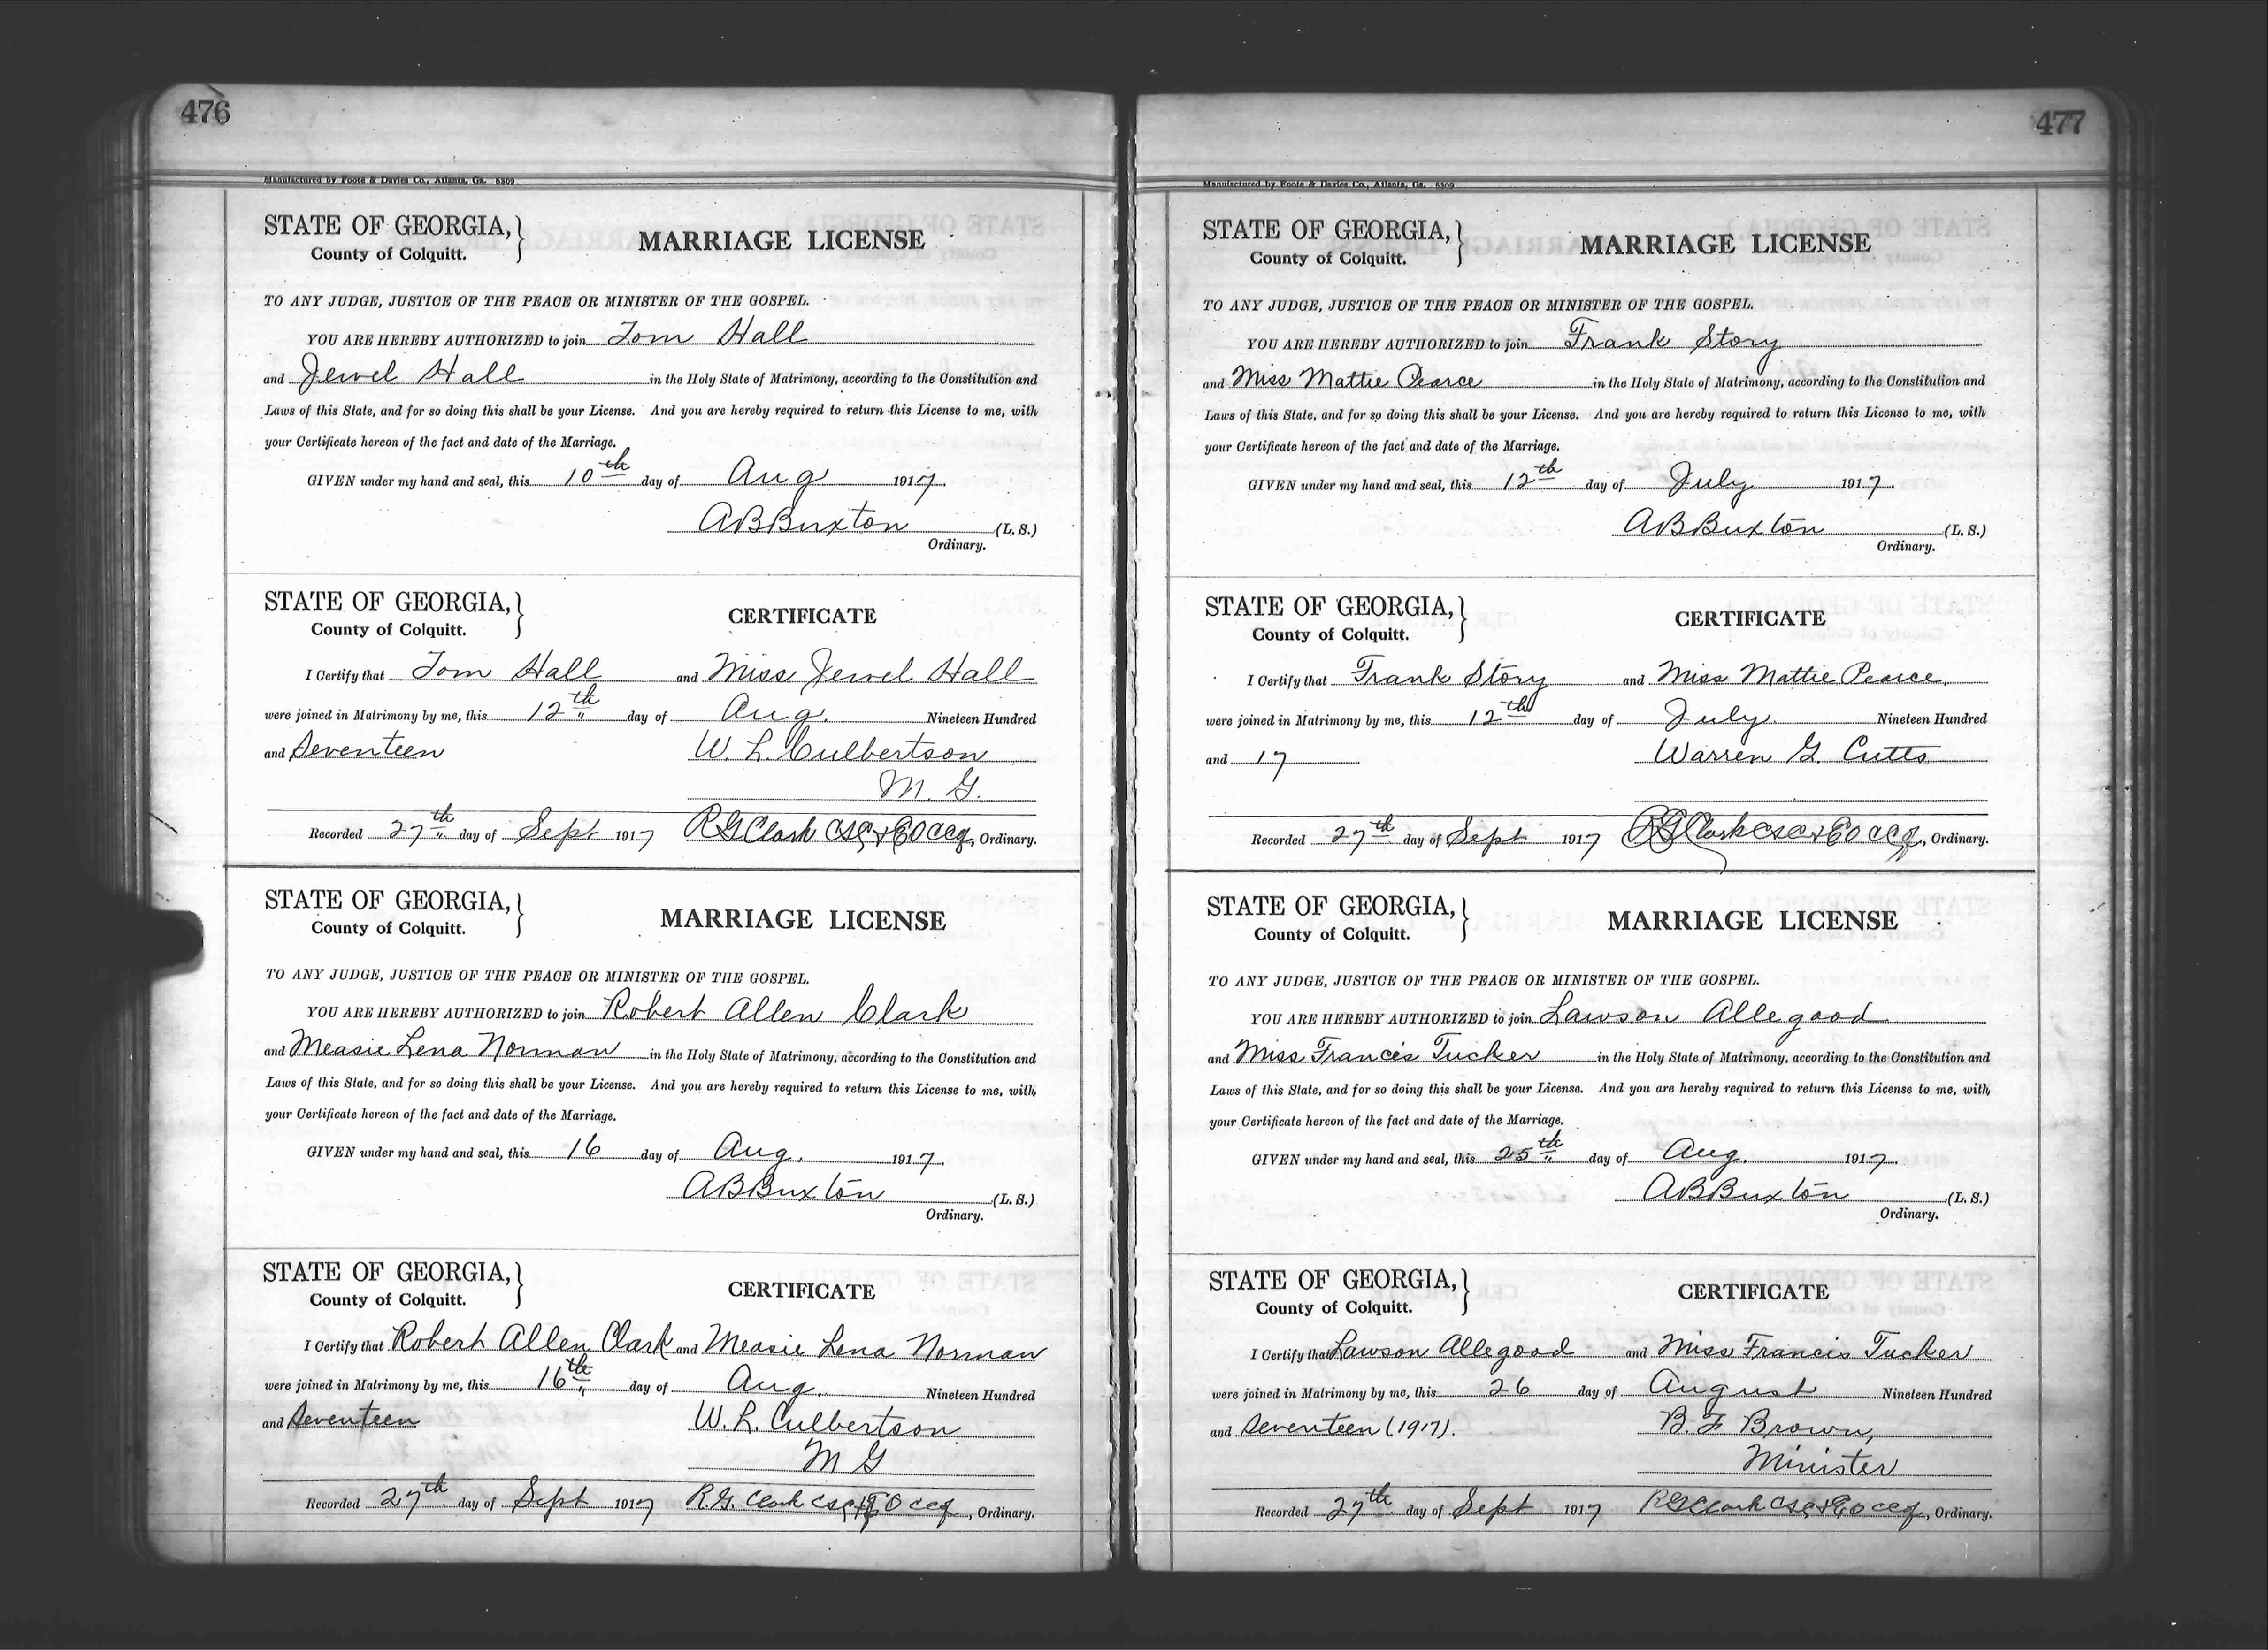 476
Manufactured by Foote & Davies Co., Atlanta, Ga. 5309
STATE OF GEORGIA,
County of Colquitt.
MARRIAGE LICENSE
TO ANY JUDGE, JUSTICE OF THE PEACE OR MINISTER OF THE GOSPEL.
YOU ARE HEREBY AUTHORIZED to join Tom Hall
and Jewel Hall in the Holy State of Matrimony, according to the Constitution and
Laws of this State, and for so doing this shall be your License. And you are hereby required to return this License to me, with
your Certificate hereon of the fact and date of the Marriage.
GIVEN under my hand and seal, this 10th day of Aug 1917.
A B Buxton (L. S.)
Ordinary.
STATE OF GEORGIA,
County of Colquitt.
CERTIFICATE
I Certify that Tom Hall and Miss Jewel Hall
were joined in Matrimony by me, this 12th day of Aug. Nineteen Hundred
and Seventeen W. L. Culbertson
M. G.
Recorded 27th day of Sept 1917 R G Clark CSC & EO CCG, Ordinary.
STATE OF GEORGIA,
County of Colquitt.
MARRIAGE LICENSE
TO ANY JUDGE, JUSTICE OF THE PEACE OR MINISTER OF THE GOSPEL.
YOU ARE HEREBY AUTHORIZED to join Robert Allen Clark
and Measie Lena Norman in the Holy State of Matrimony, according to the Constitution and
Laws of this State, and for so doing this shall be your License. And you are hereby required to return this License to me, with
your Certificate hereon of the fact and date of the Marriage.
GIVEN under my hand and seal, this 16 day of Aug. 1917.
A B Buxton (L. S.)
Ordinary.
STATE OF GEORGIA,
County of Colquitt.
CERTIFICATE
I Certify that Robert Allen Clark and Measie Lena Norman
were joined in Matrimony by me, this 16th day of Aug. Nineteen Hundred
and Seventeen W. L. Culbertson
M G
Recorded 27th day of Sept 1917 R. G. Clark CSC & EO CCG, Ordinary.
477
Manufactured by Foote & Davies Co., Atlanta, Ga. 5309
STATE OF GEORGIA,
County of Colquitt.
MARRIAGE LICENSE
TO ANY JUDGE, JUSTICE OF THE PEACE OR MINISTER OF THE GOSPEL.
YOU ARE HEREBY AUTHORIZED to join Frank Story
and Miss Mattie Pearce in the Holy State of Matrimony, according to the Constitution and
Laws of this State, and for so doing this shall be your License. And you are hereby required to return this License to me, with
your Certificate hereon of the fact and date of the Marriage.
GIVEN under my hand and seal, this 12th day of July 1917.
A B Buxton (L. S.)
Ordinary.
STATE OF GEORGIA,
County of Colquitt.
CERTIFICATE
I Certify that Frank Story and Miss Mattie Pearce
were joined in Matrimony by me, this 12th day of July. Nineteen Hundred
and 17 Warren G. Cutts
Recorded 27th day of Sept 1917 R G Clark CSC & EO CCG, Ordinary.
STATE OF GEORGIA,
County of Colquitt.
MARRIAGE LICENSE
TO ANY JUDGE, JUSTICE OF THE PEACE OR MINISTER OF THE GOSPEL.
YOU ARE HEREBY AUTHORIZED to join Lawson Allegood
and Miss Francis Tucker in the Holy State of Matrimony, according to the Constitution and
Laws of this State, and for so doing this shall be your License. And you are hereby required to return this License to me, with
your Certificate hereon of the fact and date of the Marriage.
GIVEN under my hand and seal, this 25th day of Aug. 1917.
A B Buxton (L. S.)
Ordinary.
STATE OF GEORGIA,
County of Colquitt.
CERTIFICATE
I Certify that Lawson Allegood and Miss Francis Tucker
were joined in Matrimony by me, this 26 day of August Nineteen Hundred
and Seventeen (1917). B. F Brown,
Minister
Recorded 27th day of Sept 1917 R G Clark CSC & EO CCG, Ordinary.